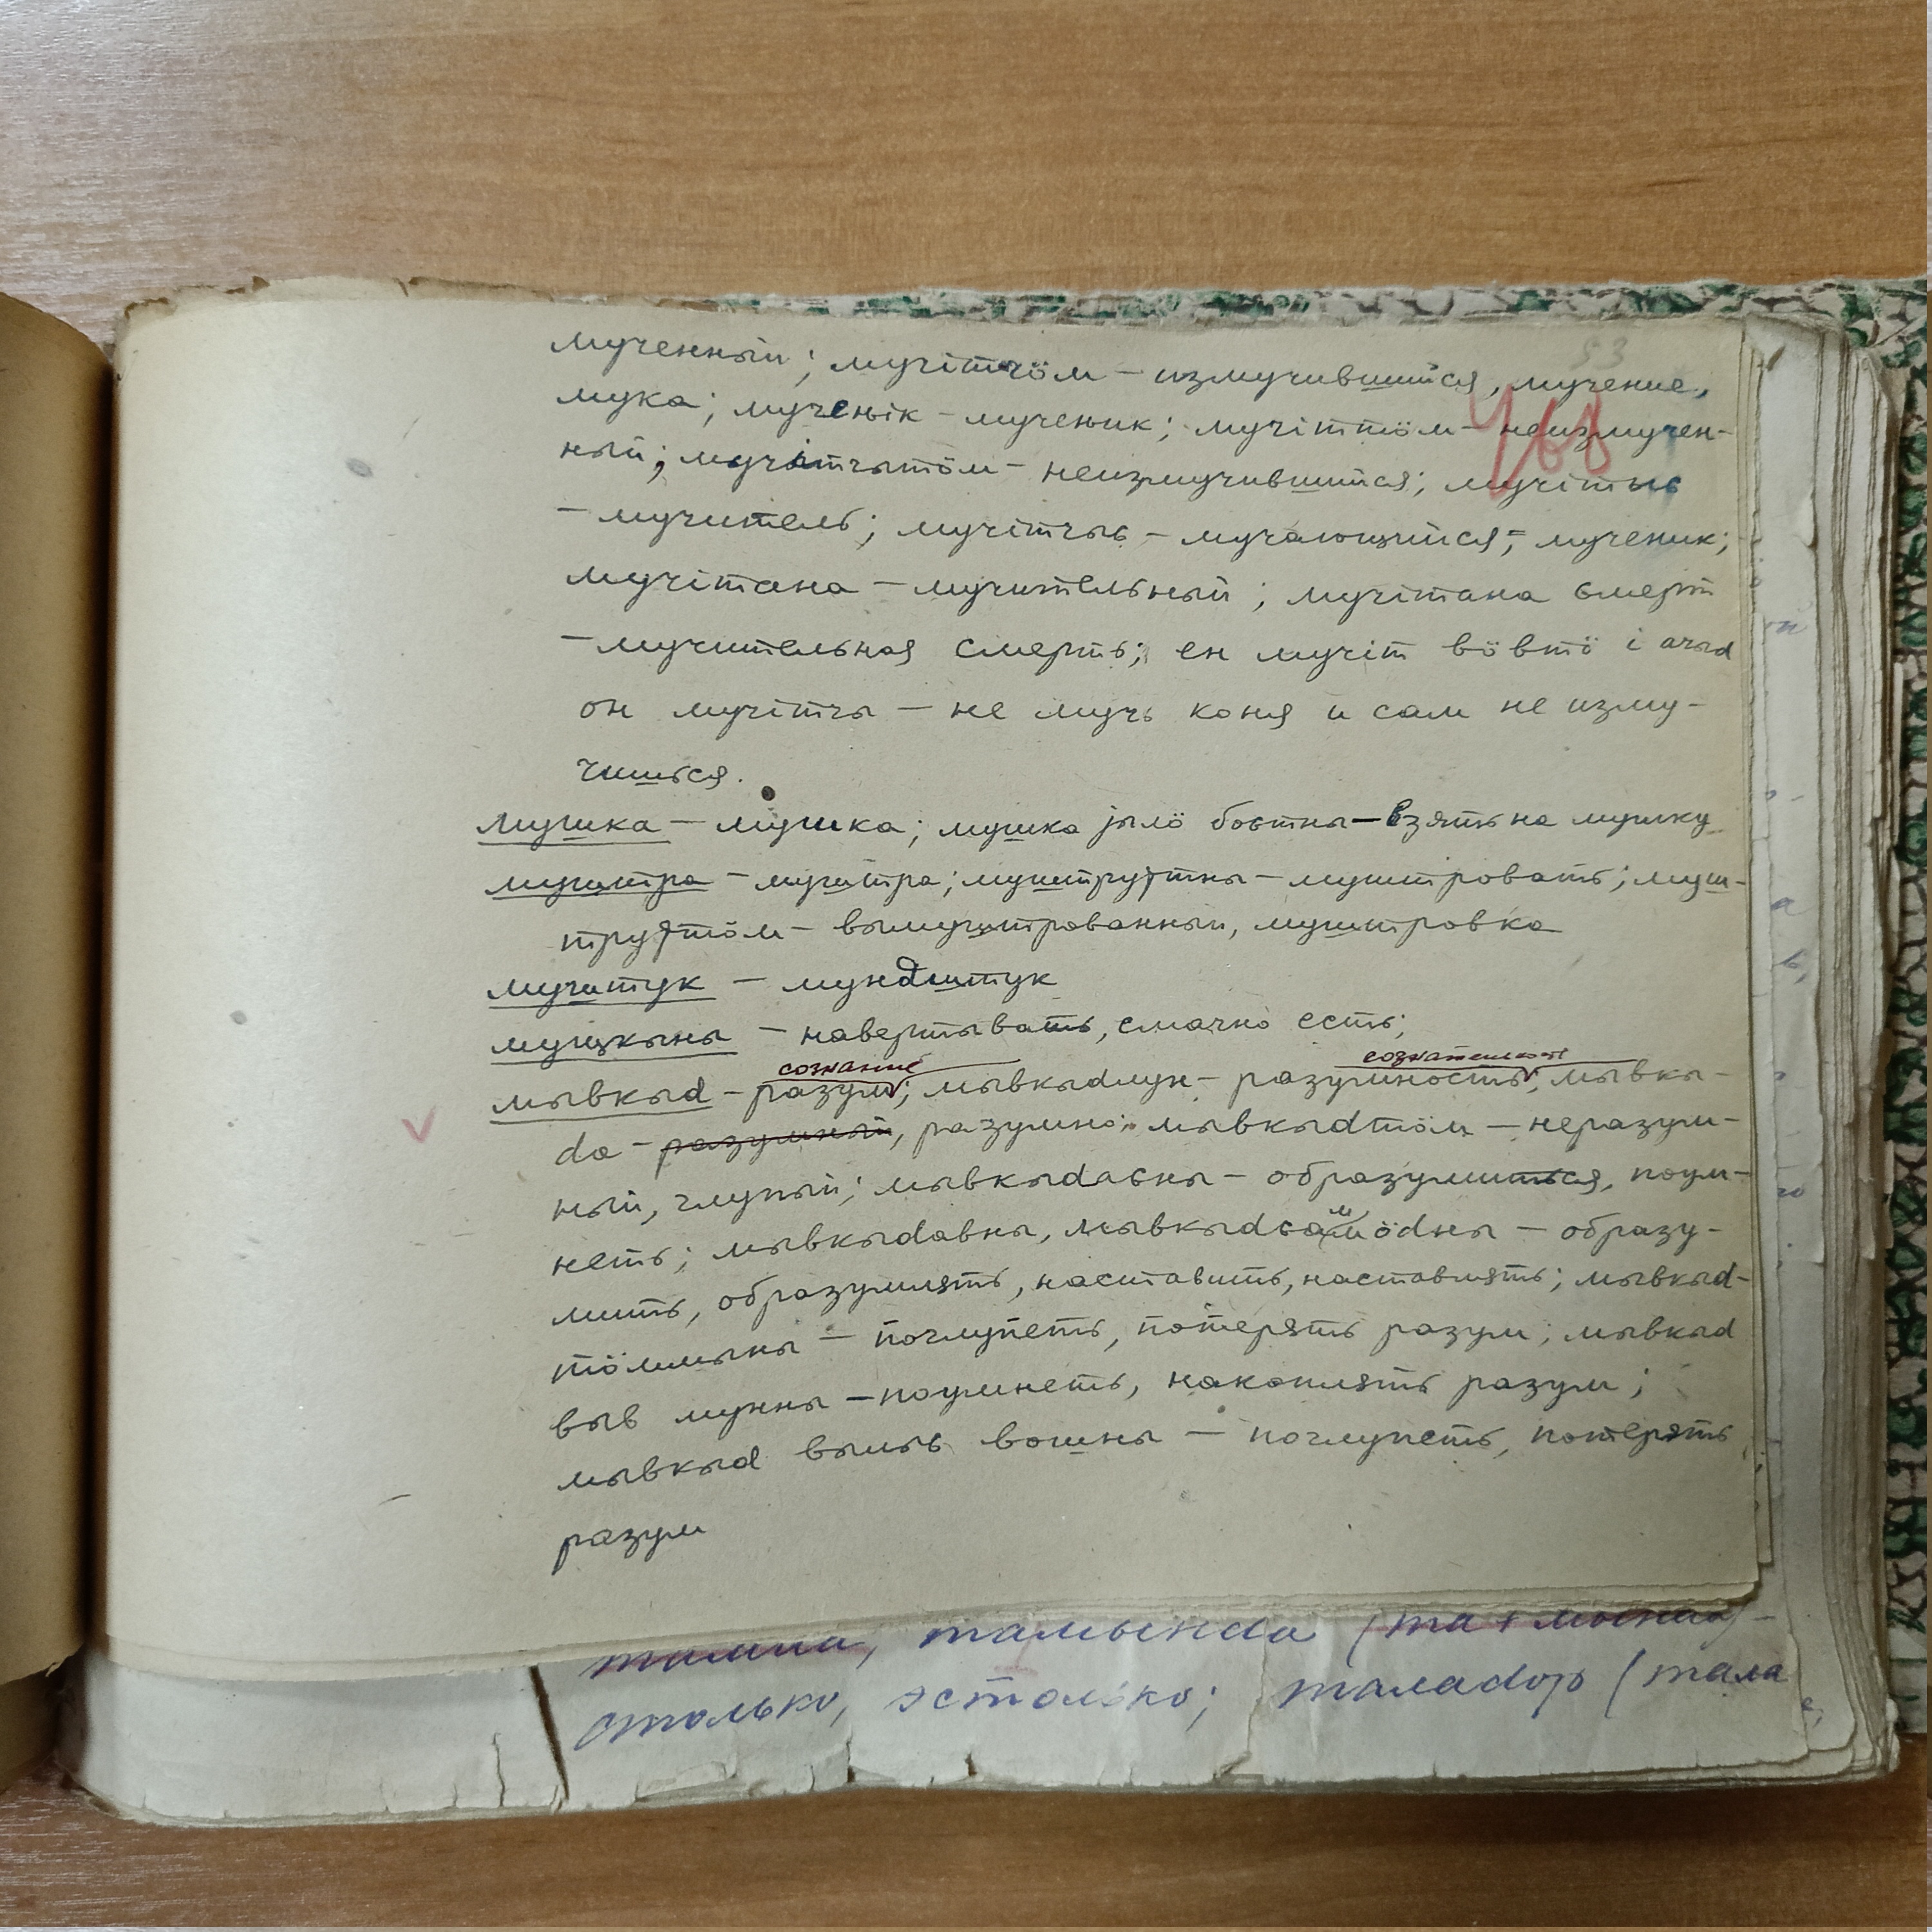 53
мученный; мучітчӧм – измучившийся, мучение,
мука; мученьік – мученик; мучіттӧм – неизмучен-
ный; мучітчытӧм – неизмучившийся; мучітыԍ
– мучитель; мучітчыԍ – мучающийся; мученик;
мучітана – мучительный; мучітана смерт
– мучительная смерть; ен мучіт вӧвтӧ і аԁыԁ
он мучітчы – не мучь коня и сам не изму-
чишься.
мушка – мушка; мушка јылӧ боԍтны – взять на мушку
муштра – муштра; муштрујтны – муштровать; муш-
трујтӧм – вымуштрованный, муштровка
муштук – мундштук
мушкыны – навертывать, смачно есть;
сознание сознательность
мывкыԁ – разум; мывкыԁлун – разумность; мывкы-
ԁа – разумный, разумно; мывкыԁтӧм – неразум-
ный, глупый; мывкыԁаԍны – образумиться, поум-
неть; мывкыԁавны, мывкыԁԍамӧԁны – образу-
мить, образумлять, наставить, наставлять; мывкыԁ-
тӧммыны – поглупеть, потерять разум; мывкыԁ
выв мунны – поумнеть, накоплять разум;
мывкыԁ вылыԍ вошны – поглупеть, потерять
разум
тамында (та + мында) –
столько, эстолько; талаԁор (тала